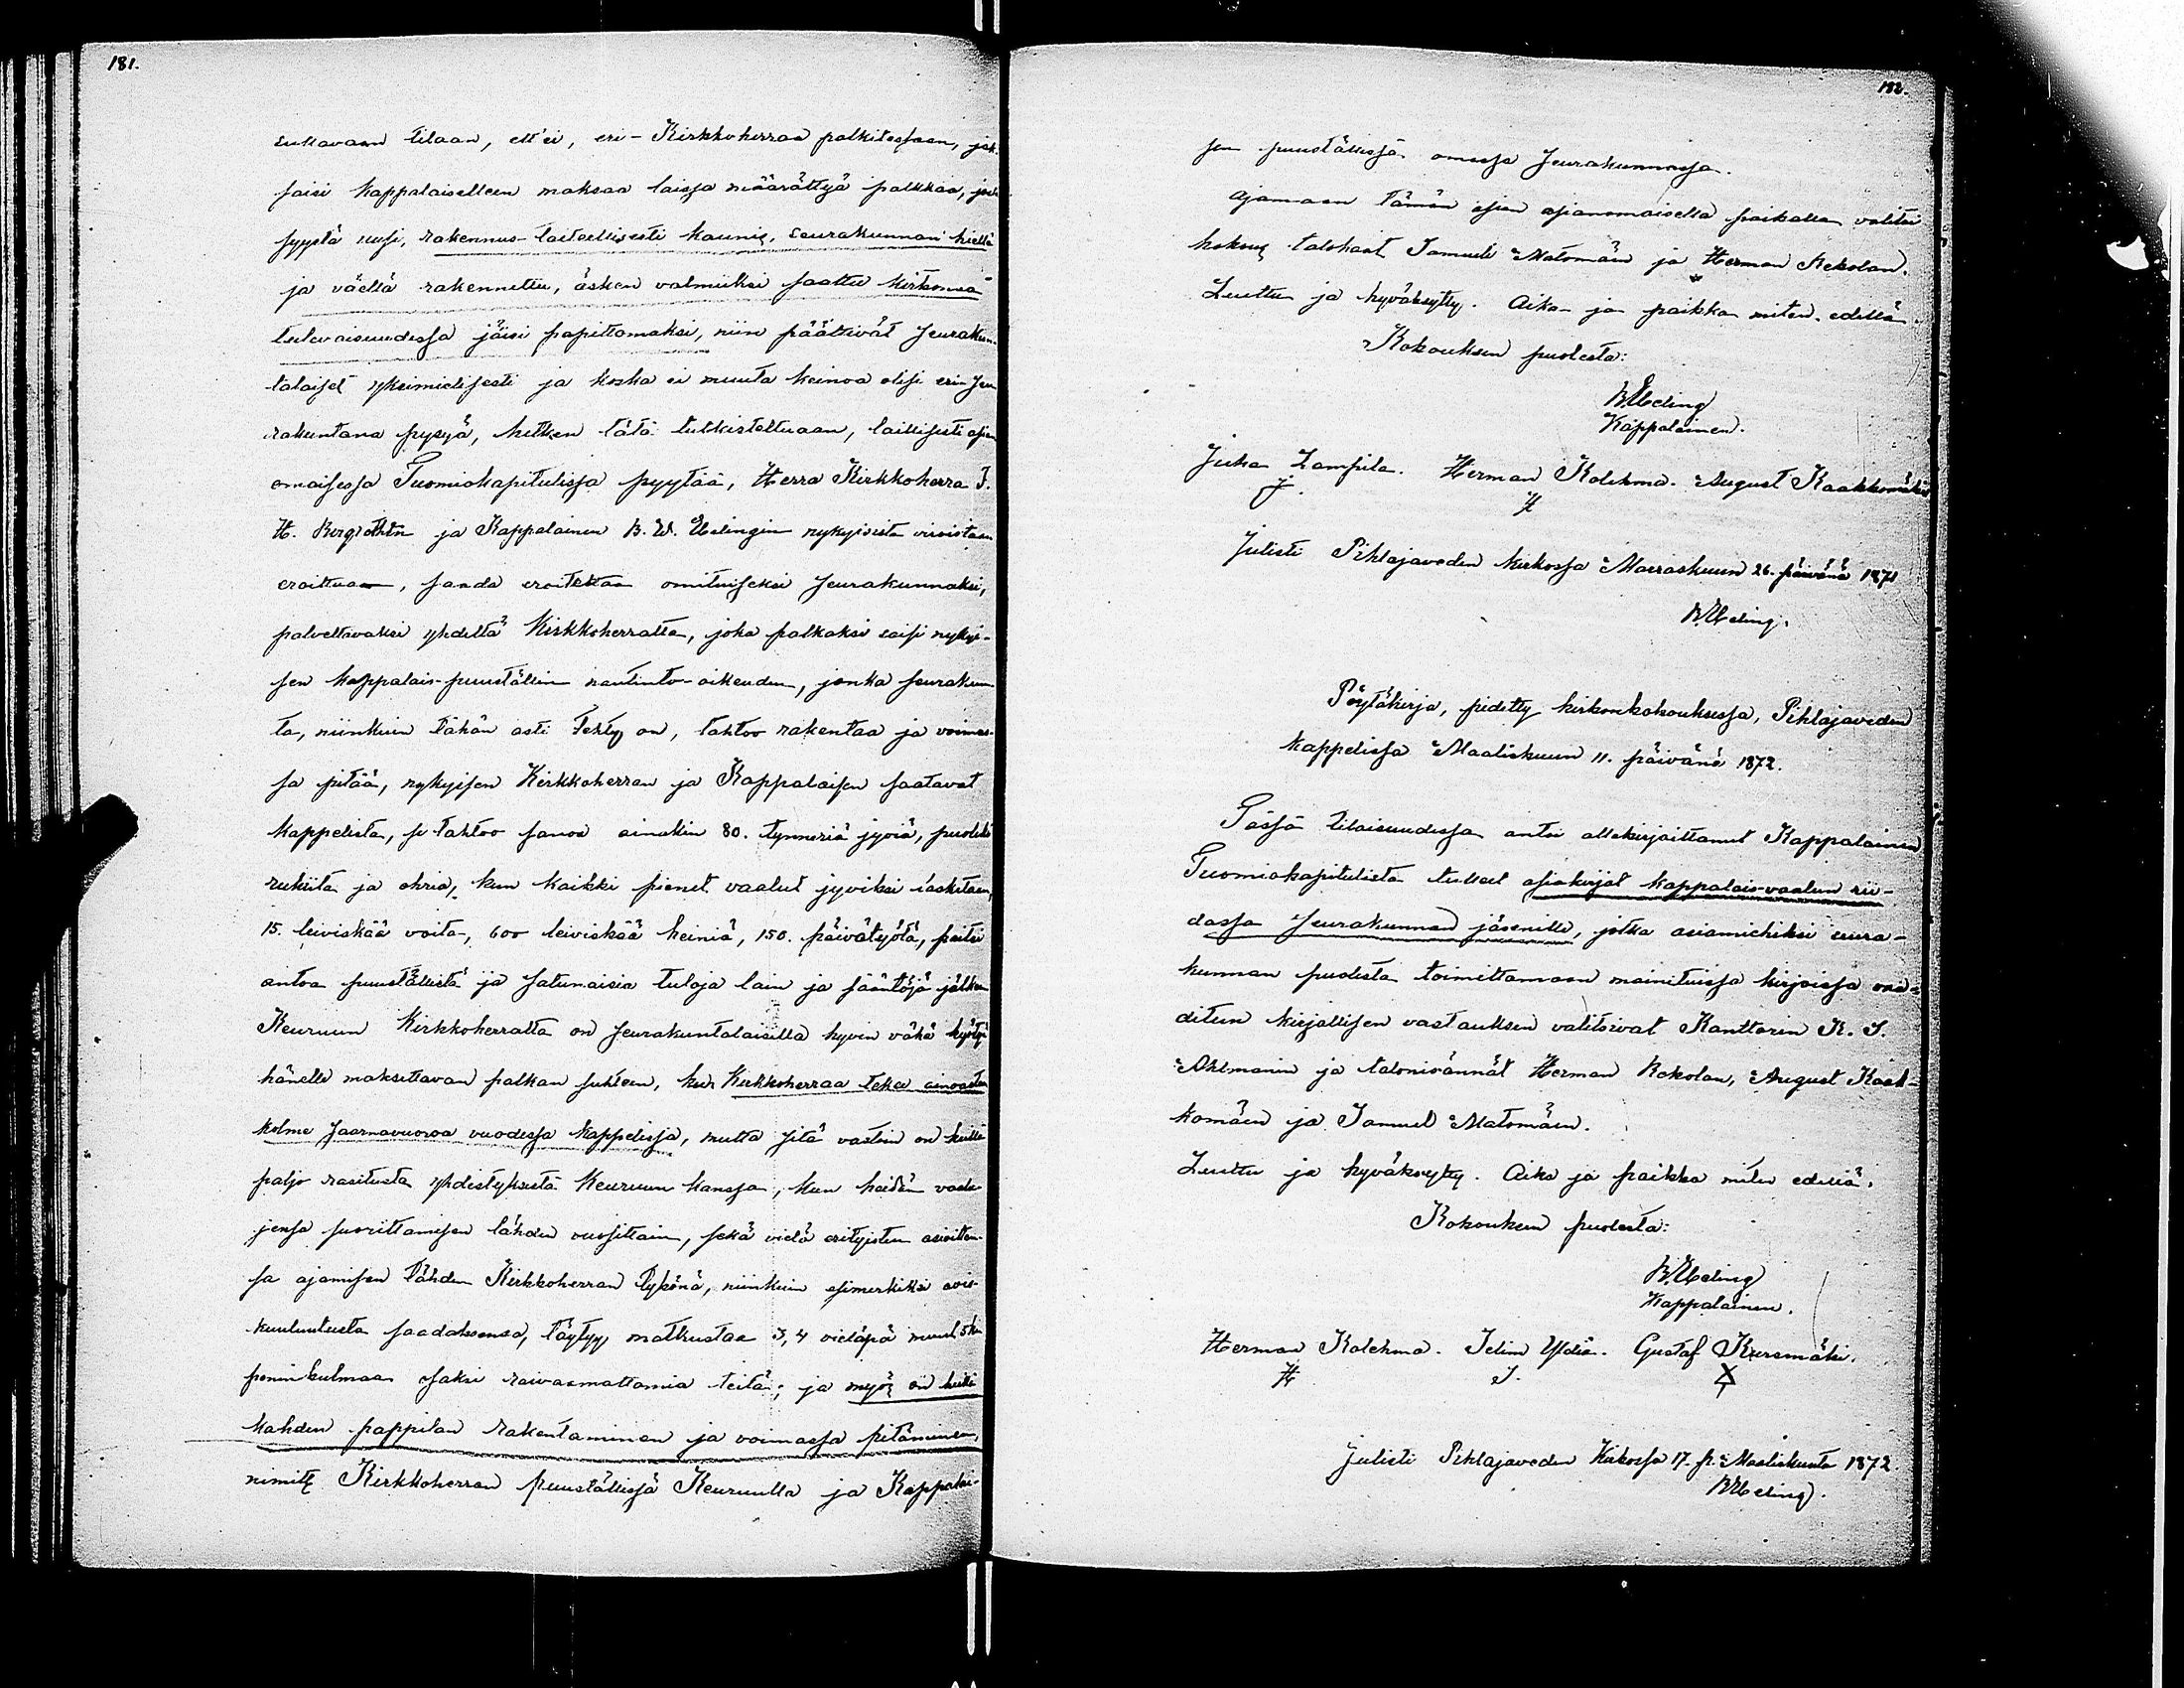 181.
tullavaan tilaan, ett'ei, eri-Kirkkoherraa palkitessaan, jak-
saisi Kappalaiselleen maksaa laissa määrättyä palkkaa, jos
syystä uusi, rakennus-taiteellisesti kaunis, seurakunnan hiellä
ja väellä rakennettu, äsken valmiiksi saattu kirkonsa
tulevaisuudessa jäisi papittomaksi, niin päättivät Seurakun-
talaiset yksimielisesti ja koska ei muuta keinoa olisi eri Seu
rakuntana pysyä, hetken tätä tutkisteltuaan, laillisesti asian
omaisessa Tuomiokapitulissa pyytää, Herra Kirkkoherra J.
H. Bergrothin ja Kappalainen B. W. Ubelingin nykyisistä viroistaan
erottua, saada eroitettaa omituiseksi Seurakunnaksi,
palveltavaksi yhdeltä Kirkkoherralta, joka palkaksi saisi nykyi-
sen kappalais-puustellin nautinto-oikeuden, jonka seurakun-
ta, niinkuin tähän asti tehty on, tahtoo rakentaa ja voimas-
sa pitää, nykyisen Kirkkoherran ja Kappalaisen saatavat
Kappelista, se tahtoo sanoa ainakin 80. tynneriä jyviä, puoleksi
rukiita ja ohria, kun kaikki pienet vaalut jyviksi lasketaan,
15. leiviskää voita, 600 leiviskää heiniä, 150. päivätyötä, paitsi
antoa puuställistä ja satunaisia tuloja lain ja sääntöjä jälkeen
Keuruun Kirkkoherralta on Seurakuntalaisilla hyvin vähä hyötyä
hänelle maksettavan palkan suhteen, kun Kirkkoherraa tekee ainoastan
kolme Saarnavuoroa vuodessa kappelissa, mutta sitä vastoin on heillä
paljo rasitusta yhdistyksestä Keuruun kanssa, kun heidän vaalu
jensa suorittamisen tähden vuosittain, sekä vielä erityisten asioitten-
sa ajamisen tähden Kirkkoherran tykönä, niinkuin esimerkiksi avio-
kuulutusta saadaksensa, täytyy matkustaa 3, 4 vieläpä muut 5kin
peninkulmaa osaksi raivaamattomia teitä; ja myös on heillä
kahden pappilan rakentaminen ja voimassa pitäminen,
nimitt. Kirkkoherran puuställissä Keuruulla ja Kappalai-
182.
sen puuställissä omassa Seurakunnassa.
Ajamaan tämän asian asianomaisella paikalla valitsi
kokous talokaat Samuli Matomäin ja Herman Kekolan.
Luettu ja hyväksytty. Aika ja paikka miten edellä.
Kokouksen puolesta:
B. Ubeling
Kappalainen.
Juha Lampila. Herman Kolehma. August Kaakkomäki
J. H
Julisti Pihlajaveden kirkossa Marraskuun 26. päivänä 1871
B. Ubeling.
Pöytäkirja, pidetty kirkonkokouksessa, Pihlajaveden
Kappelissa Maaliskuun 11. päivänä 1872.
Tässä tilaisuudessa antoi allekirjoittanut Kappalainen
Tuomiokapitulista tulleet asiakirjat kappalais-vaalin rii-
dassa Seurakunnan jäsenille, jotka asiamiehiksi seura-
kunnan puolesta toimittamaan mainituissa kirjoissa vaa-
ditun kirjallisen vastauksen valitsivat Kanttorin K. J.
Ahlmanin ja talonisännät Herman Kekolan, August Kaak-
komäen ja Samuel Matomäen.
Luettu ja hyväksytty. Aika ja paikka miten edellä.
Kokouksen puolesta:
B. Ubeling
Kappalainen.
Herman Kolehma. Gustaf Kuresmäki.
H
Julisti Pihlajaveden Kirkossa 17. p. Maaliskuuta 1872.
B. Ubeling.